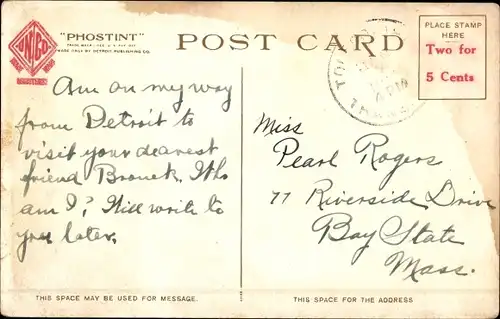 "PHOSTINT"
MADE ONLY BY DETROIT PUBLISHING CO.
POST CARD
PLACE STAMP
HERE
Two for
5 Cents
Am on my way
from Detroit to
visit your dearest
friend Bronek. Who
am I? Will write to
you later.
Miss
Pearl Rogers
77 Riverside Drive
Bay State
Mass.
THIS SPACE MAY BE USED FOR MESSAGE.
THIS SPACE IS FOR THE ADDRESS